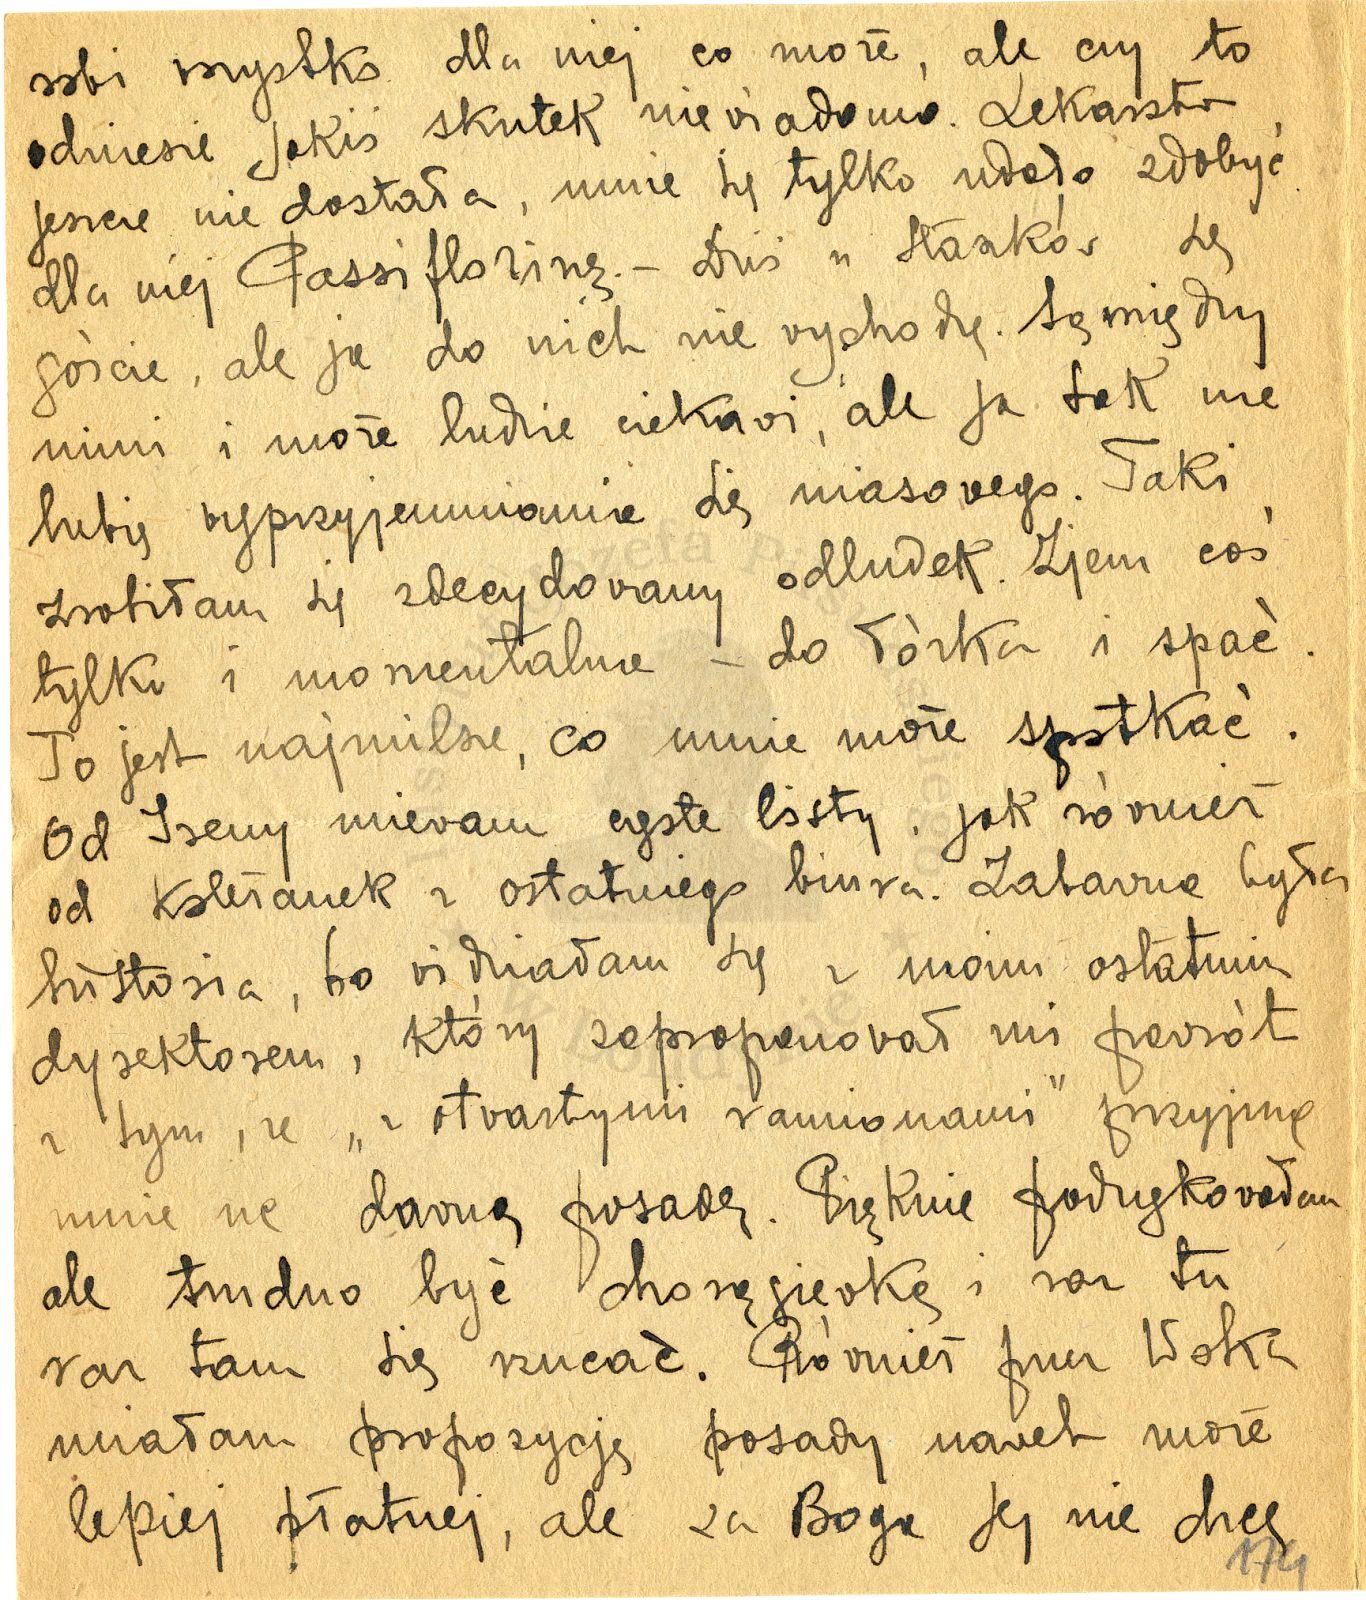 robi wszystko dla niej co może, ale czy to
odniesie jakiś skutek niewiadomo. Lekarstw
jeszcze nie dostała, mnie się tylko udało zdobyć
dla niej Passiflorinę. – Dziś u Starków są
goście, ale ja do nich nie wychodzę. Są między
nimi i może ludzie ciekawi, ale ja tak nie
lubię wyprzyjemniania się masowego. Taki
zrobiłam się zdecydowany odludek. Zjem coś
tylko i momentalnie – do łóżka i spać.
To jest najmilsze, co mnie może spotkać.
Od Ireny miewam częste listy, jak również
od koleżanek z ostatniego biura. Zabawna była
historia, bo widziałam się z moim ostatnim
dyrektorem, który zaproponował mi powrót
z tym, że „z otwartymi ramionami" przyjmą
mnie na dawną posadę. Pięknie podziękowałam
ale trudno być chorągiewką i raz tu
raz tam się rzucać. Również przez Włoka
miałam propozycję posady nawet może
lepiej płatnej, ale za Boga jej nie chcę
174
Józefa Piłsudskiego
w Londynie